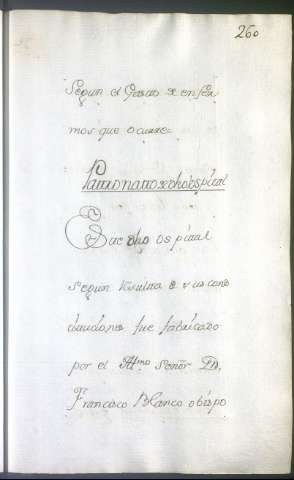 260
Segun el Gasto de enfer
mos que ocurre=
Patronatto de dho ospital
Este dho ospital
segun resulta de sus
daciones fue fabricado
por el Yll.mo Señor Dn.
Francisco Blanco obispo